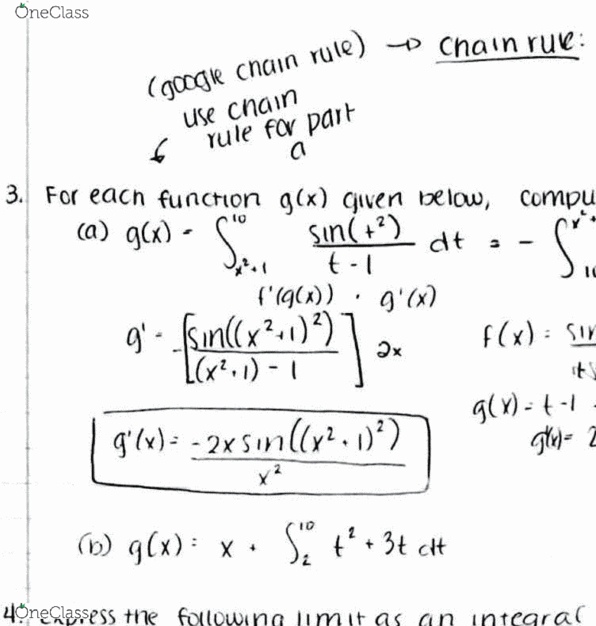 OneClass
(google chain rule) → chain rule:
use chain
rule for part
a
3. For each function g(x) given below, compu
(a) g(x) = ∫_{x²+1}^{10} sin(t²)/(t-1) dt = - ∫
f'(g(x)) · g'(x)
g' = -[sin((x²+1)²)/((x²+1)-1)] 2x f(x) = sin
g(x) = t-1
g'(x) = -2x sin((x²+1)²)/x² g'(x) = 2
(b) g(x) = x + ∫_2^{10} t² + 3t dt
OneClass
4. Express the following limit as an integral